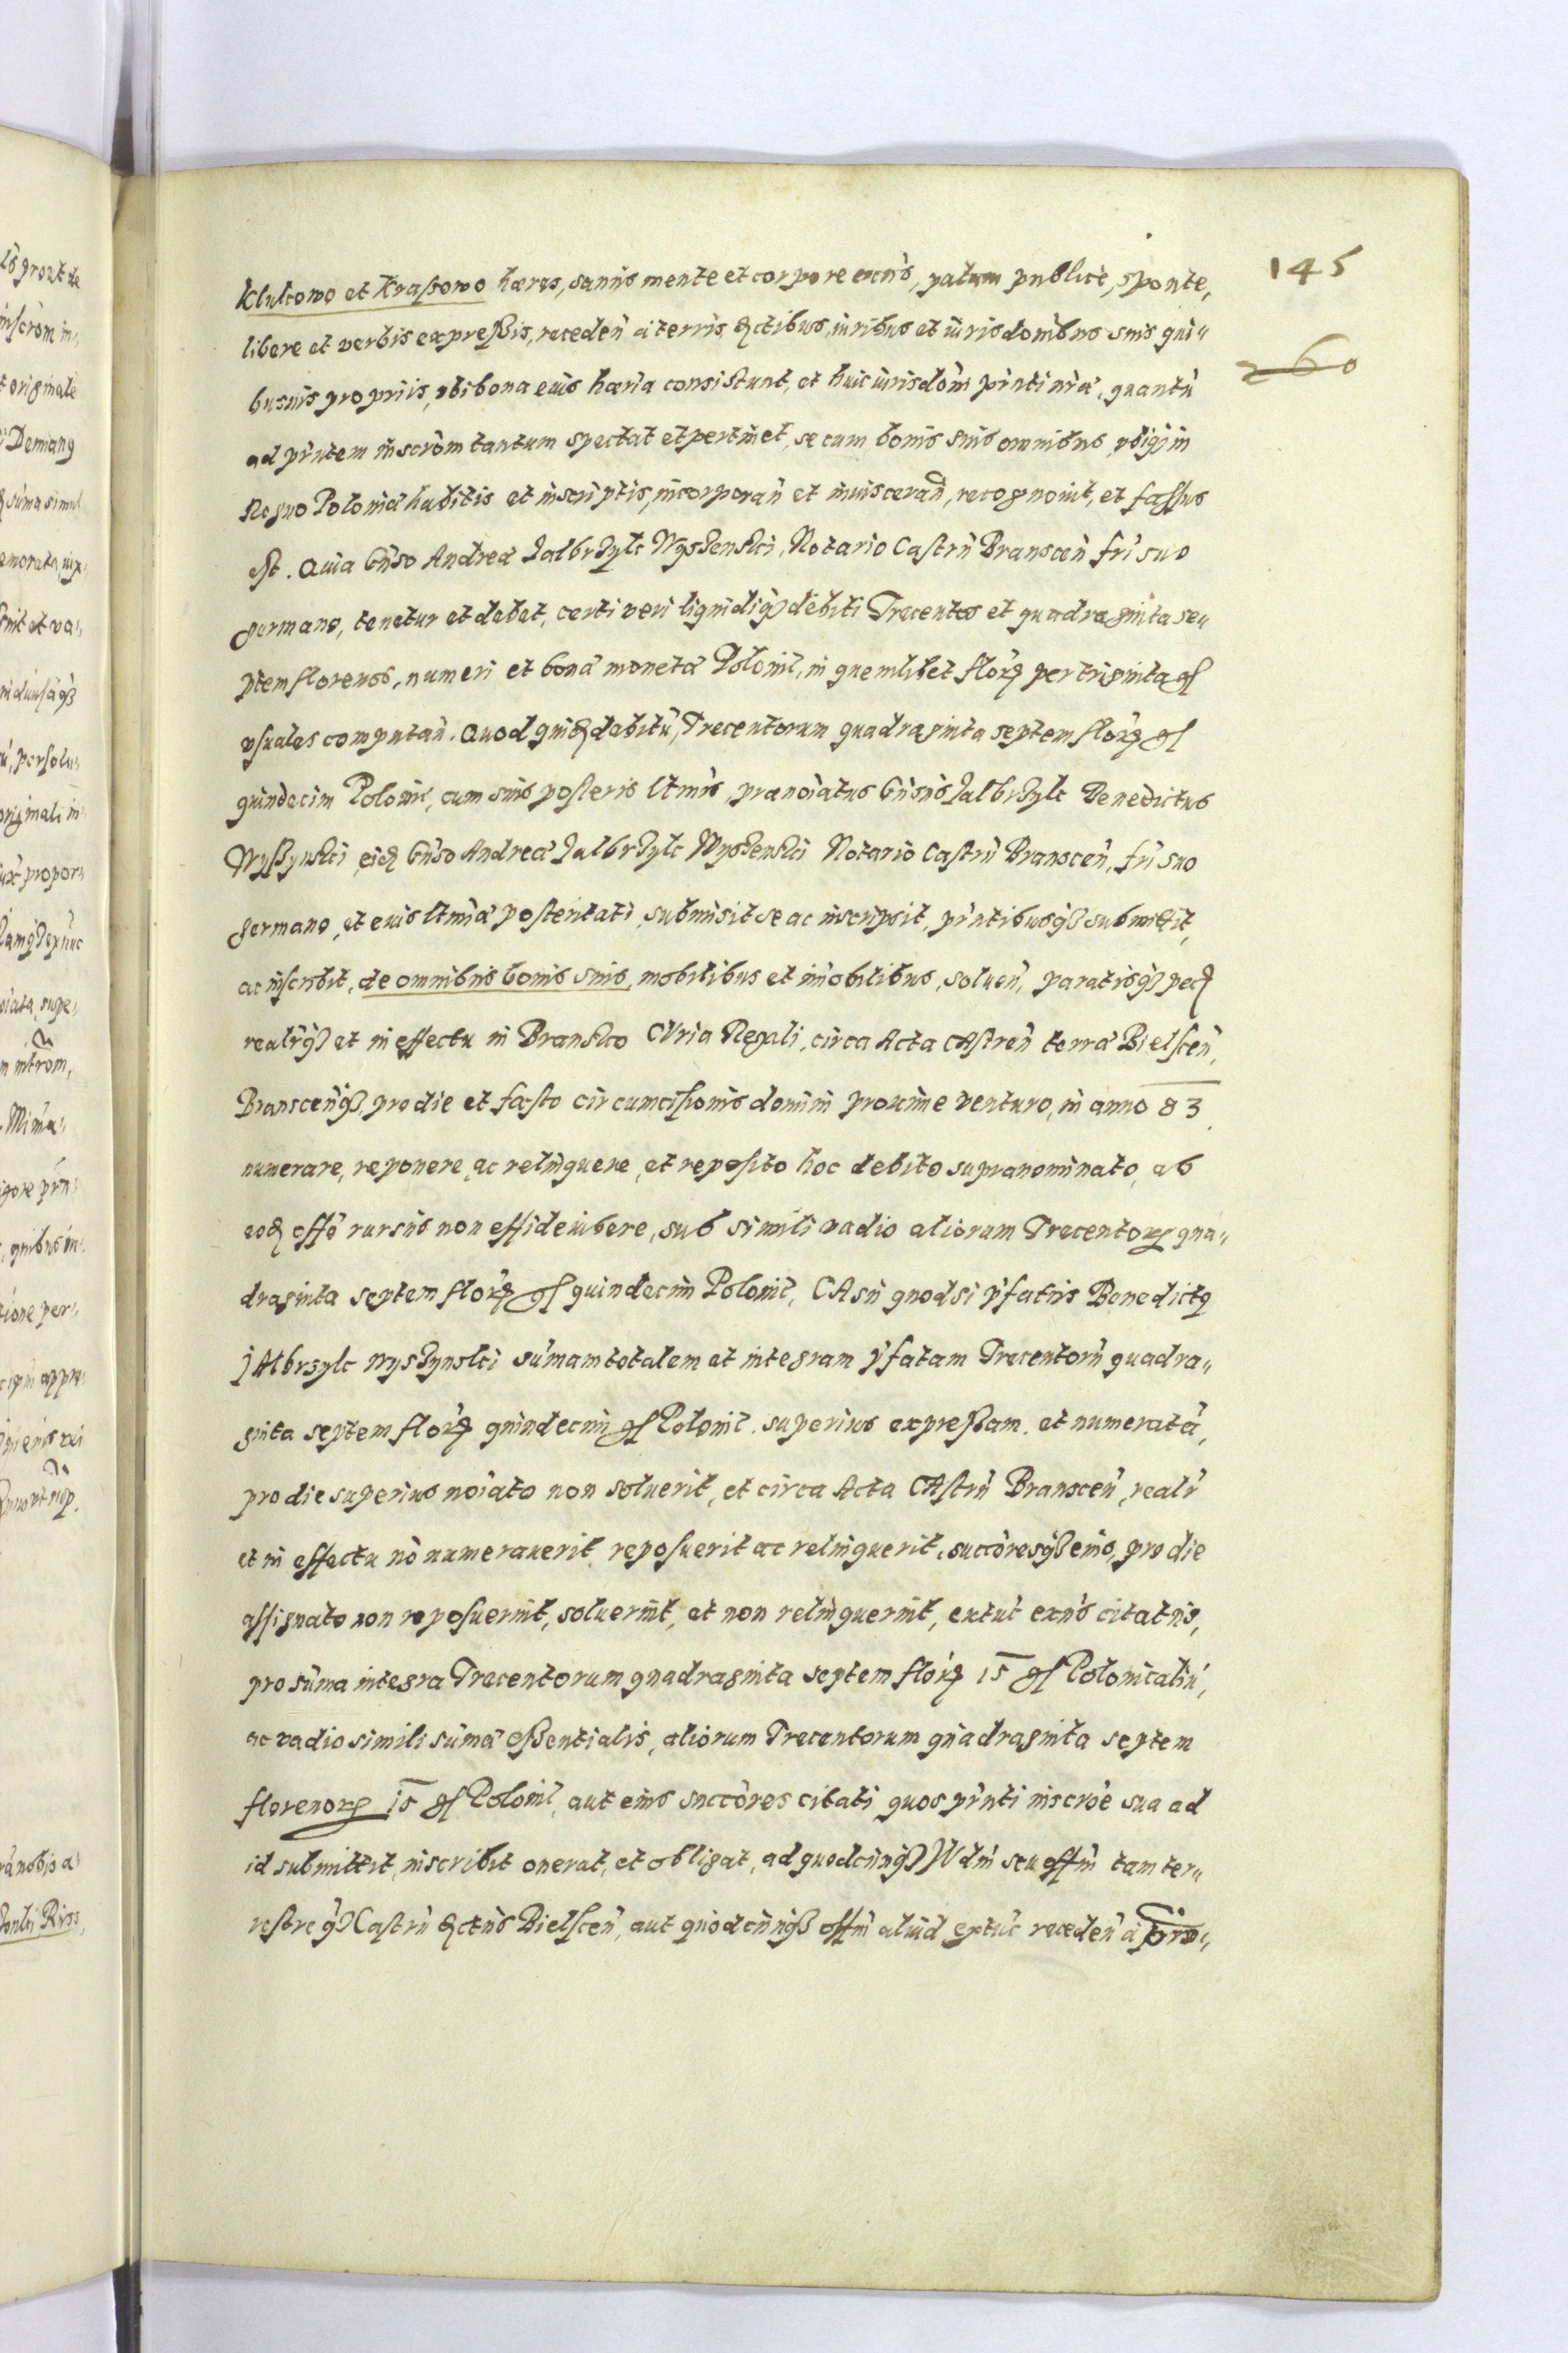 145
260
Klukowo et Krassowo hæres, sanus mente et corpore exñs, palam publicè, sponte,
libere et verbis expreßis, receden̄ à terris, districtibus, iuribus et iurisdonibus suis qui„
busuis propriis, vbi bona eius hæria consistunt, et huic iurisdōni pn̄ti nr̄æ, quantū
ad pn̄tem inscrōm tantum spectat et pertinet, se cum bonis suis omnibus, vbiq̨ in
Regno Poloniæ habitis et inscriptis, incorporan̄ et inuisceran̄, recognouit, et fassus
est. Quia Gn̄so Andreæ Jalbrzyk Wyszenski, Notario Castrn̄ Branscen̄ fr̄i suo
germano, tenetur et debet, certi veri liquidiq̨ debiti Trecentos et quadraginta se„
ptem florenos, numeri et bonæ monetæ Poloni͡c, in quemlibet flor͡ per triginta g͡r
vsuales computan̄. Quod quid debitū, Trecentorum quadraginta septem flor͡ g͡r
quindecim Poloni͡c, cum suis posteris lt̄mis, prænoīatus Gn̄sus Jalbrzyk Benedictus
Wyßynski, eid Gn̄so Andreæ Jalbrzyk Wyszenski Notario Castrn̄ Branscen̄, fr̄i suo
germano, et eius lt̄mæ posteritati, submisit se ac inscripsit, pn̄tibusq̨ submittit,
ac inscribit, de omnibus bonis suis, mobilibus et im̄obilibus, soluen̄, paratisq̨ pec̄
realr̄q̨ et in effectu in Bransko CVria Regali, circa Acta CAstren̄ terræ Bielscen̄,
Branscen̄q̨ pro die et festo circumcisionis domini proxime venturo, in anno 83.
numerare, reponere, ac relinquere, et reposito hoc debito supranominato, ab
eod offō rursus non effideiubere, sub simili vadio aliorum Trecentor͡ qua„
draginta septem flor͡ g͡r quindecim Poloni͡c, CAsu quod si p̄fatus Benedict9
JAlbrzyk Wyszynski sum̄am totalem et integram p̄fatam Trecentorū quadra„
ginta septem flor͡ quindecim g͡r Poloni͡c. superius expreßam. et numeratā,
pro die superius noīato non soluerit, et circa Acta CAstrn̄ Branscen̄, realr̄
et in effectu nō numerauerit, reposuerit ac relinquerit, succōresq̨ eius, pro die
assignato non reposuerint, soluerint, et non relinquerint, extūc exn̄s citatus,
pro sum̄a integra Trecentorum quadraginta septem flor͡ 15 g͡r Polonicaliū,
ac vadio simili sum̄æ eßentialis, aliorum Trecentorum quadraginta septem
florenor͡ 15 g͡r Poloni͡c, aut eius succōres citati quos pn̄ti inscrōe sua ad
id submittit, inscribit onerat, et obligat, ad quodcunq̨ Iūdm̄ seu offm̄ tam ter„
restre q̨ Castrn̄ districtus Bielscen̄, aut quodcunq̨ offm̄ aliud extūc receden̄ à pro„